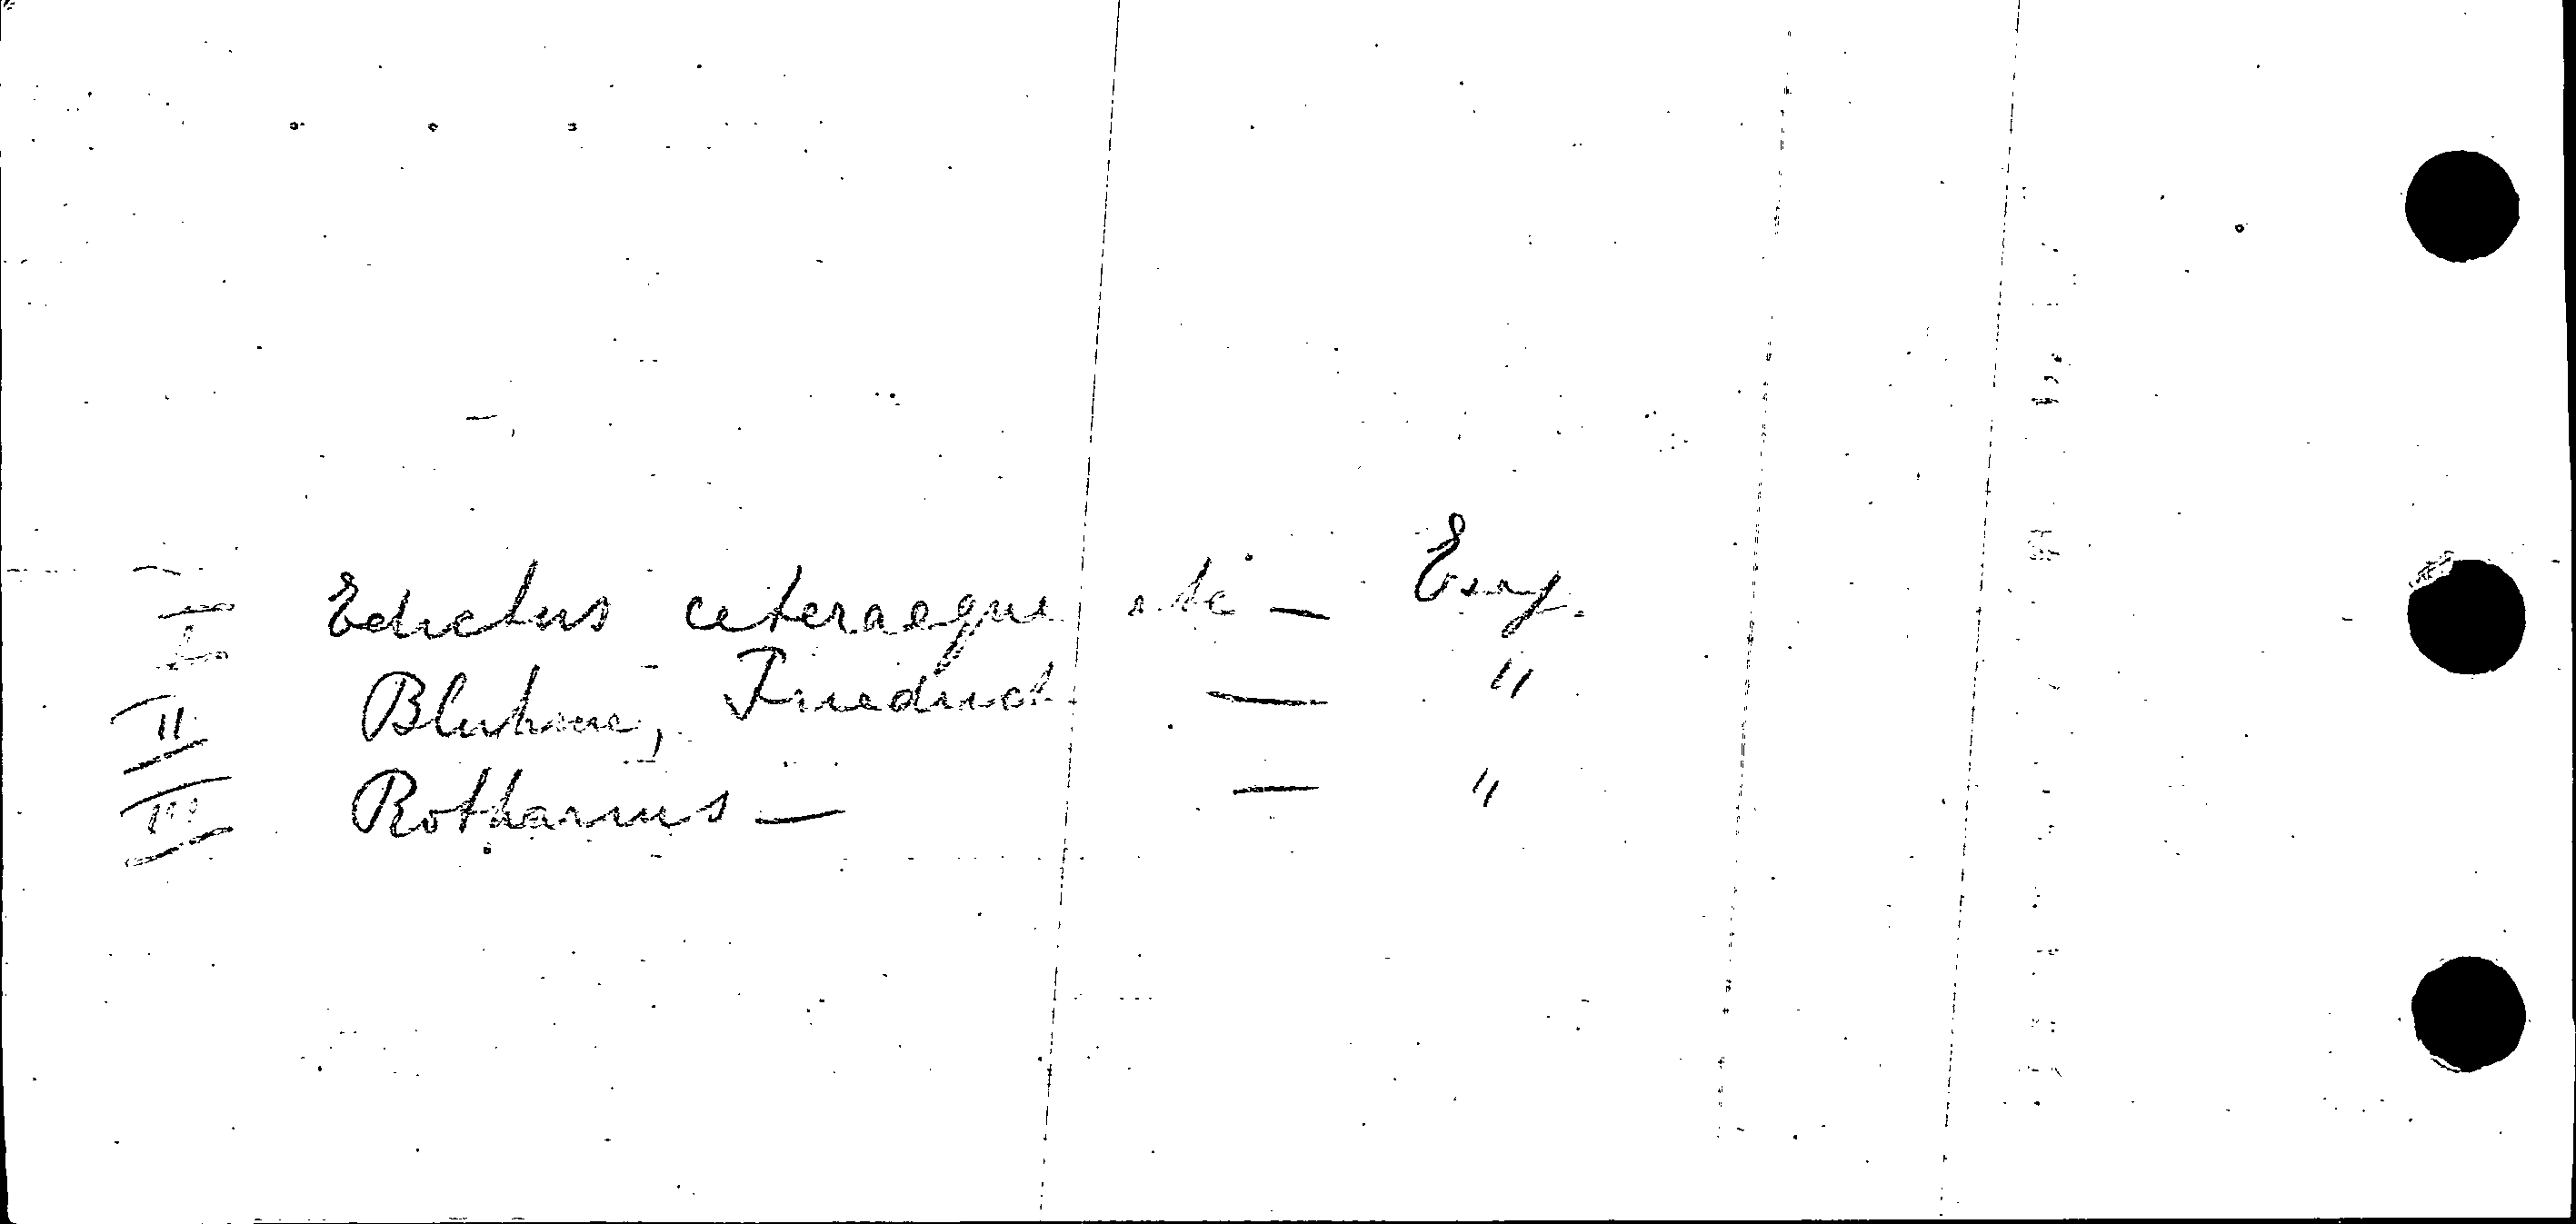 I Edictus ceteraeque etc — Eng.
II Bluhme, Friedrich — "
III Rotharius — — "